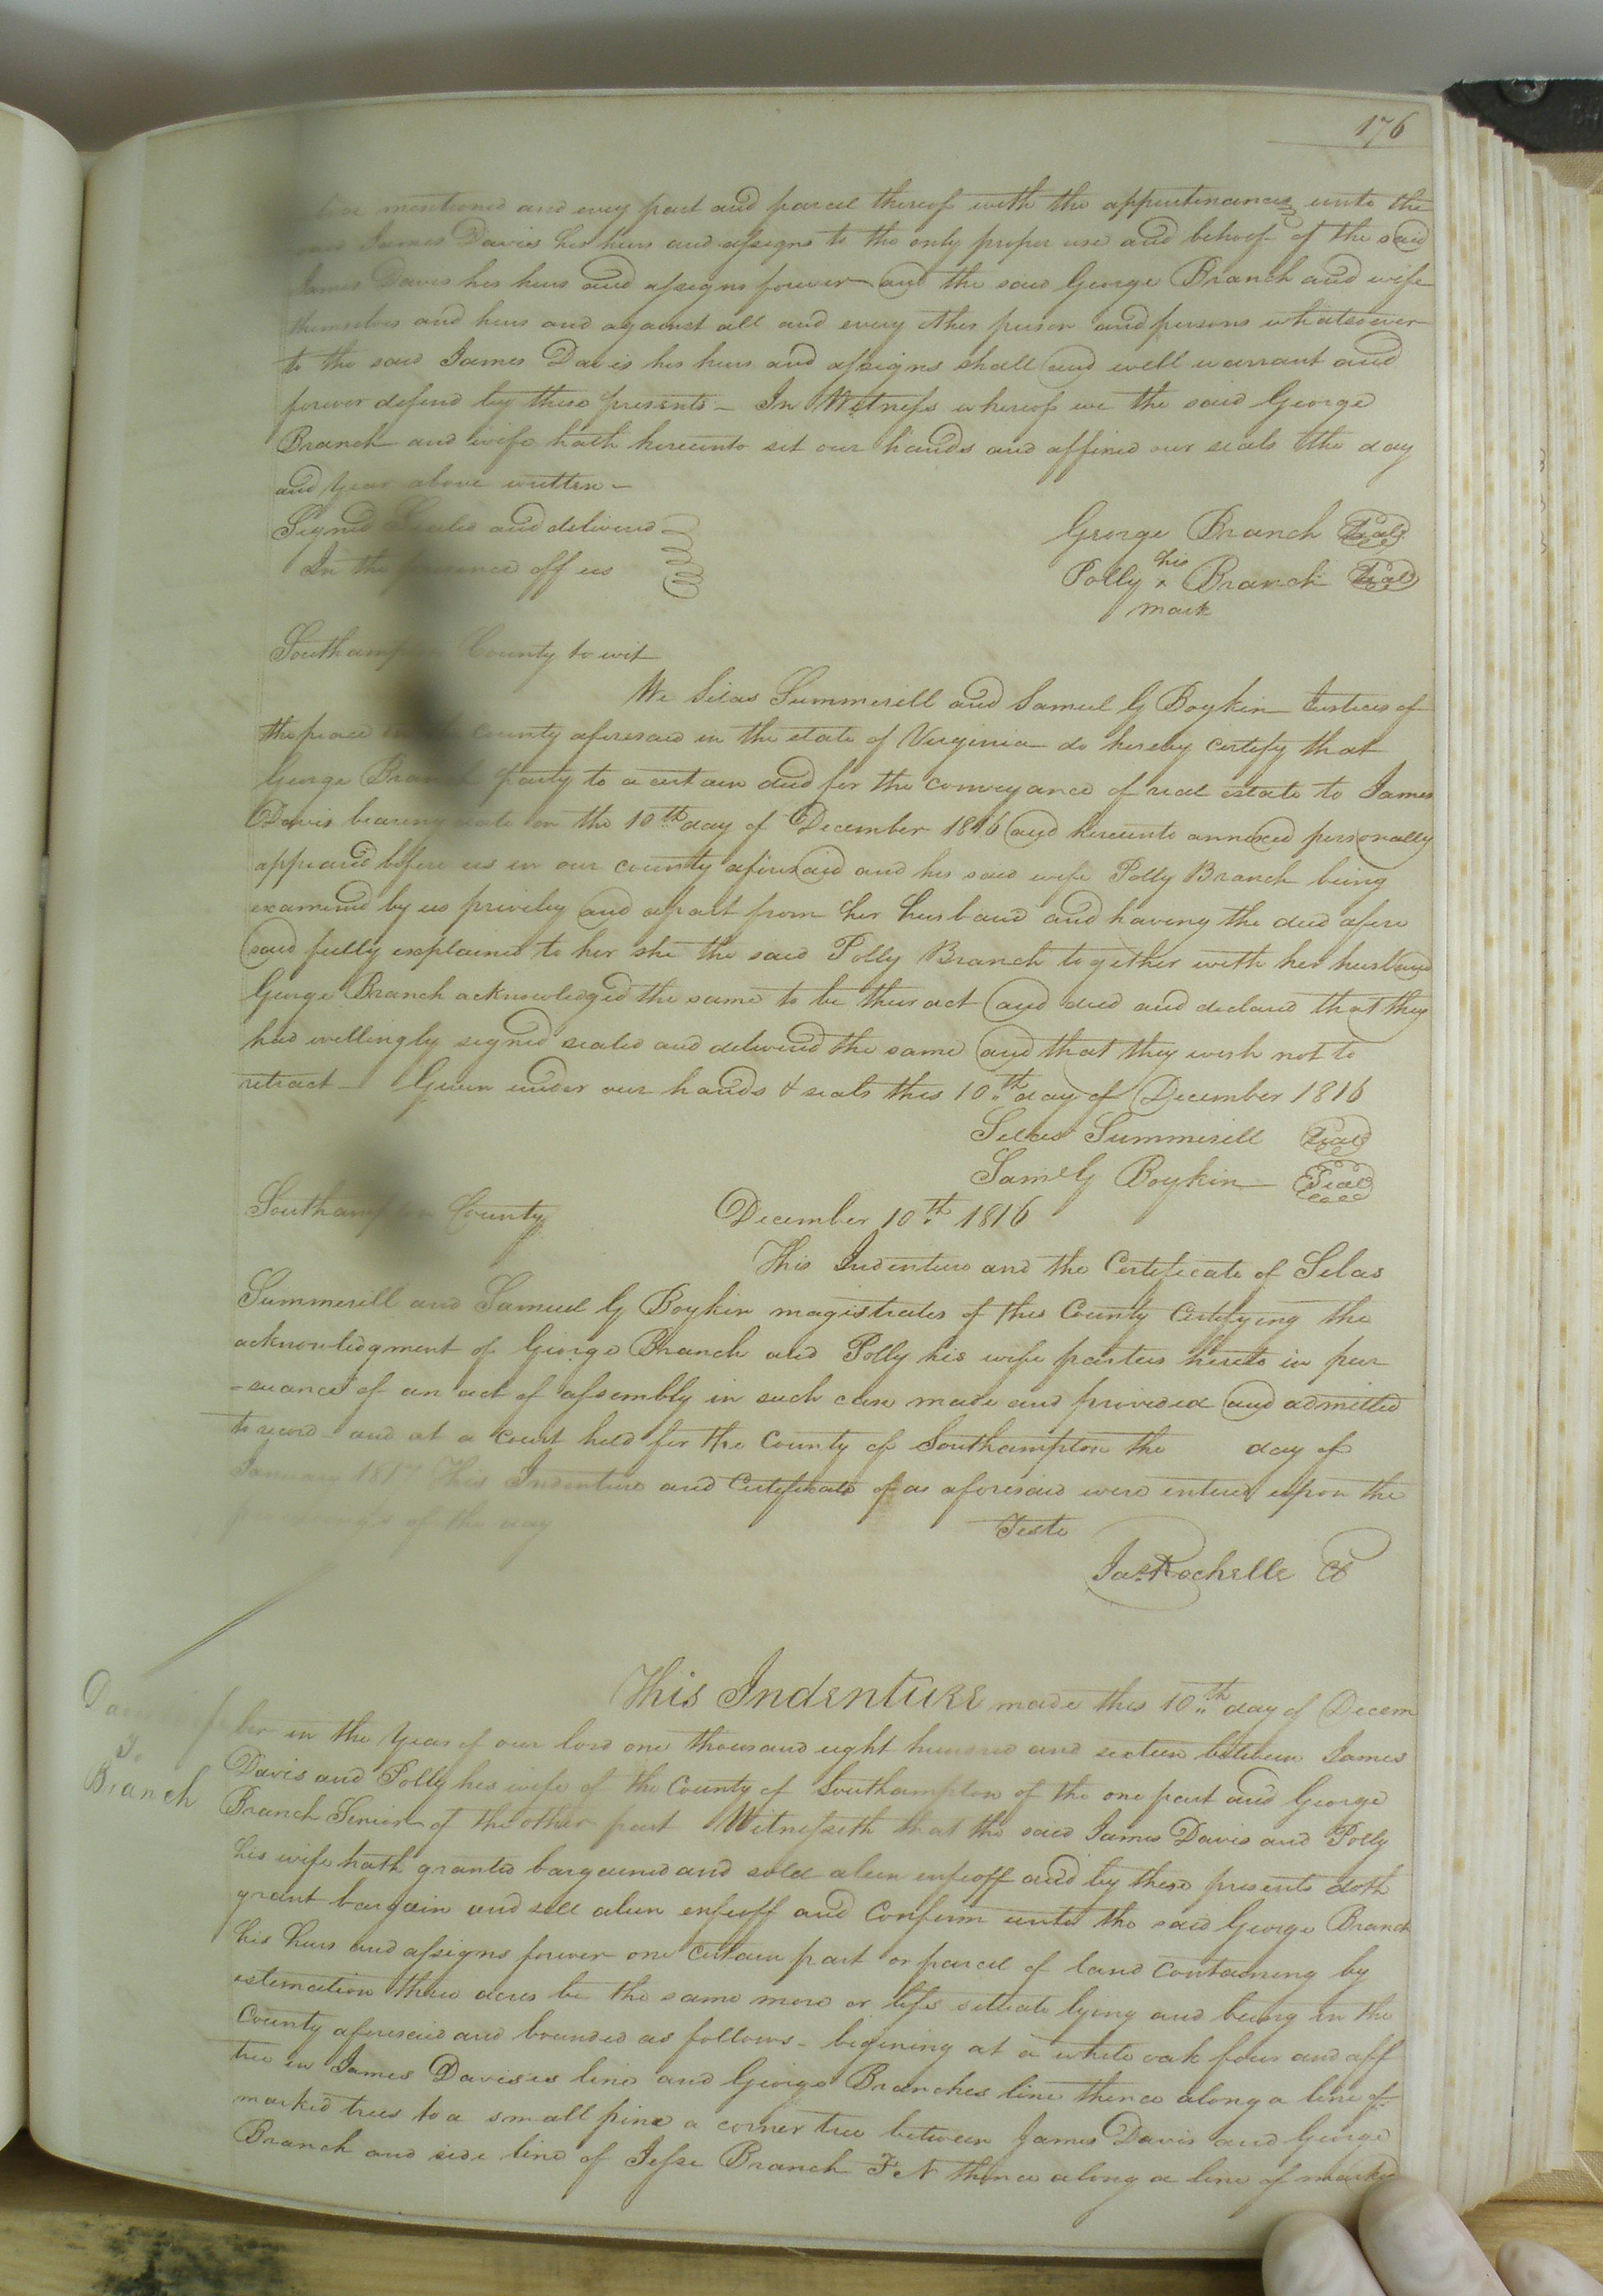 176
mentioned and every part and parcel thereof with the appurtenances unto the
said James Davis his heirs and assigns to the only proper use and behoof of the said
James Davis his heirs and assigns forever and the said George Branch and wife
themselves and heirs and against all and every other person and persons whatsoever
to the said James Davis his heirs and assigns shall and will warrant and
forever defend by these presents - In Witness whereof we the said George
Branch and wife hath hereunto set our hands and affixed our seals the day
and year above written -
Signed Sealed and delivered
In the presence off us
George Branch Seal
his
Polly x Branch Seal
mark
Southampton County to wit
We Silas Summerill and Samuel G Boykin Justices of
the peace in the County aforesaid in the state of Virginia do hereby certify that
George Branch party to a certain deed for the conveyance of real estate to James
Davis bearing date on the 10th day of December 1816 and hereunto annexed personally
appeared before us in our county aforesaid and his said wife Polly Branch being
examined by us privily and apart from her husband and having the deed afore
said fully explained to her she the said Polly Branch together with her husband
George Branch acknowledged the same to be their act and deed and declared that they
had willingly signed sealed and delivered the same and that they wish not to
retract - Given under our hands & seals this 10th day of December 1816
Silas Summerill Seal
Saml G Boykin Seal
Southampton County December 10th 1816
This Indenture and the Certificate of Silas
Summerill and Samuel G Boykin magistrates of this County Certifying the
acknowledgment of George Branch and Polly his wife parties hereto in pur
-suance of an act of assembly in such case made and provided and admitted
to record - and at a Court held for the County of Southampton the day of
January 1817 This Indenture and Certificate of as aforesaid were entered upon the
proceedings of the day Teste
Jas Rochelle C
Davis
To
Branch
This Indenture made this 10th day of Decem
ber in the Year of our lord one thousand eight hundred and sixteen between James
Davis and Polly his wife of the County of Southampton of the one part and George
Branch Senior of the other part Witnesseth that the said James Davis and Polly
his wife hath granted bargained and sold alien enfeoff and by these presents doth
grant bargain and sell alien enfeoff and Confirm unto the said George Branch
his heirs and assigns forever one Certain part or parcel of land Containing by
estimation three acres be the same more or less situate lying and being in the
County aforesaid and bounded as follows - begining at a white oak four and aff
tree in James Davises line and George Branches line thence along a line of
marked trees to a small pine a corner tree between James Davis and George
Branch and side line of Jesse Branch thence along a line of marked